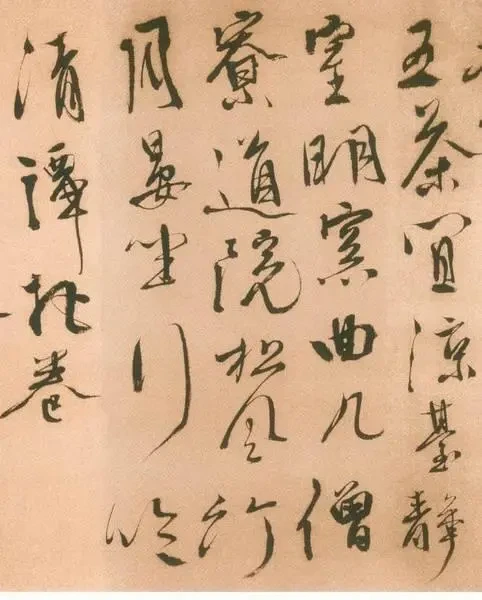 五茶宜涼臺靜
室明窗曲几僧
寮道院松風竹
月晏坐行吟
清譚把卷